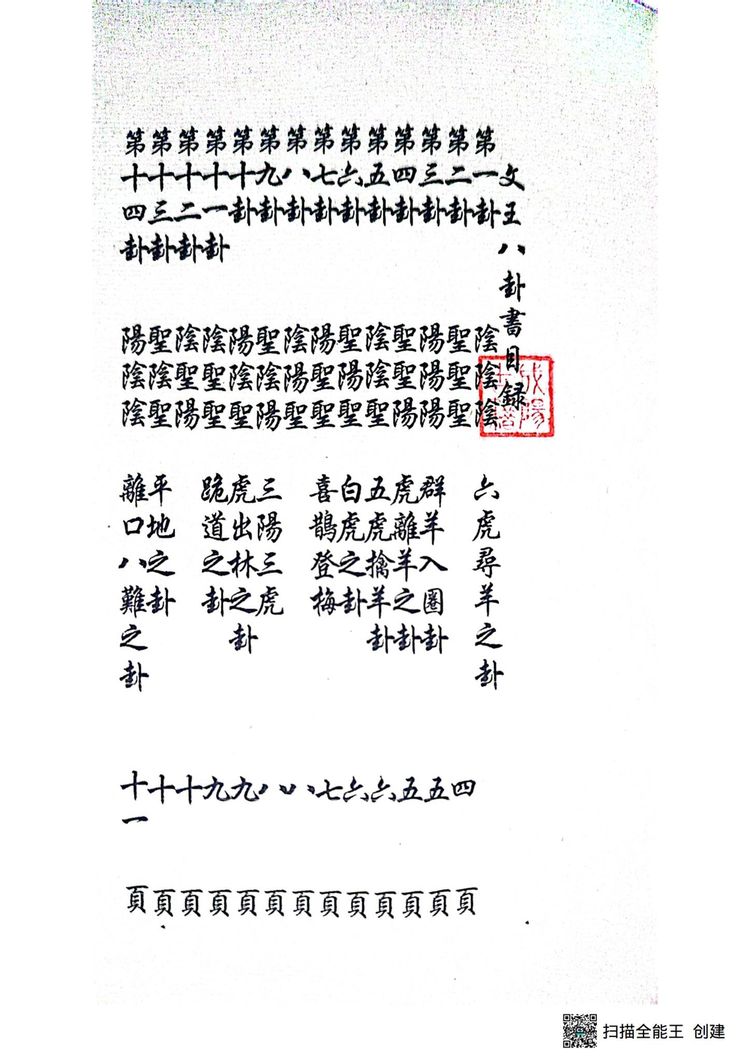 文王八卦書目錄
第一卦 陰陰陰 六虎尋羊之卦
第二卦 聖聖聖 四頁
第三卦 陽陽陽 群羊入圈卦 五頁
第四卦 聖聖陽 虎離羊之卦 五頁
第五卦 陰陰聖 五虎擒羊卦 六頁
第六卦 聖陽聖 白虎之卦 六頁
第七卦 陽聖聖 喜鵲登梅 七頁
第八卦 陰陽陰 八頁
第九卦 聖陽陽 三陽三虎 八頁
第十卦 陽陰聖 虎出林之卦 九頁
第十一卦 陰聖聖 跪道之卦 九頁
第十二卦 陰陽陽 十頁
第十三卦 聖陰聖 平地之卦 十頁
第十四卦 陽陰陰 離口八難之卦 十一頁
扫描全能王 创建